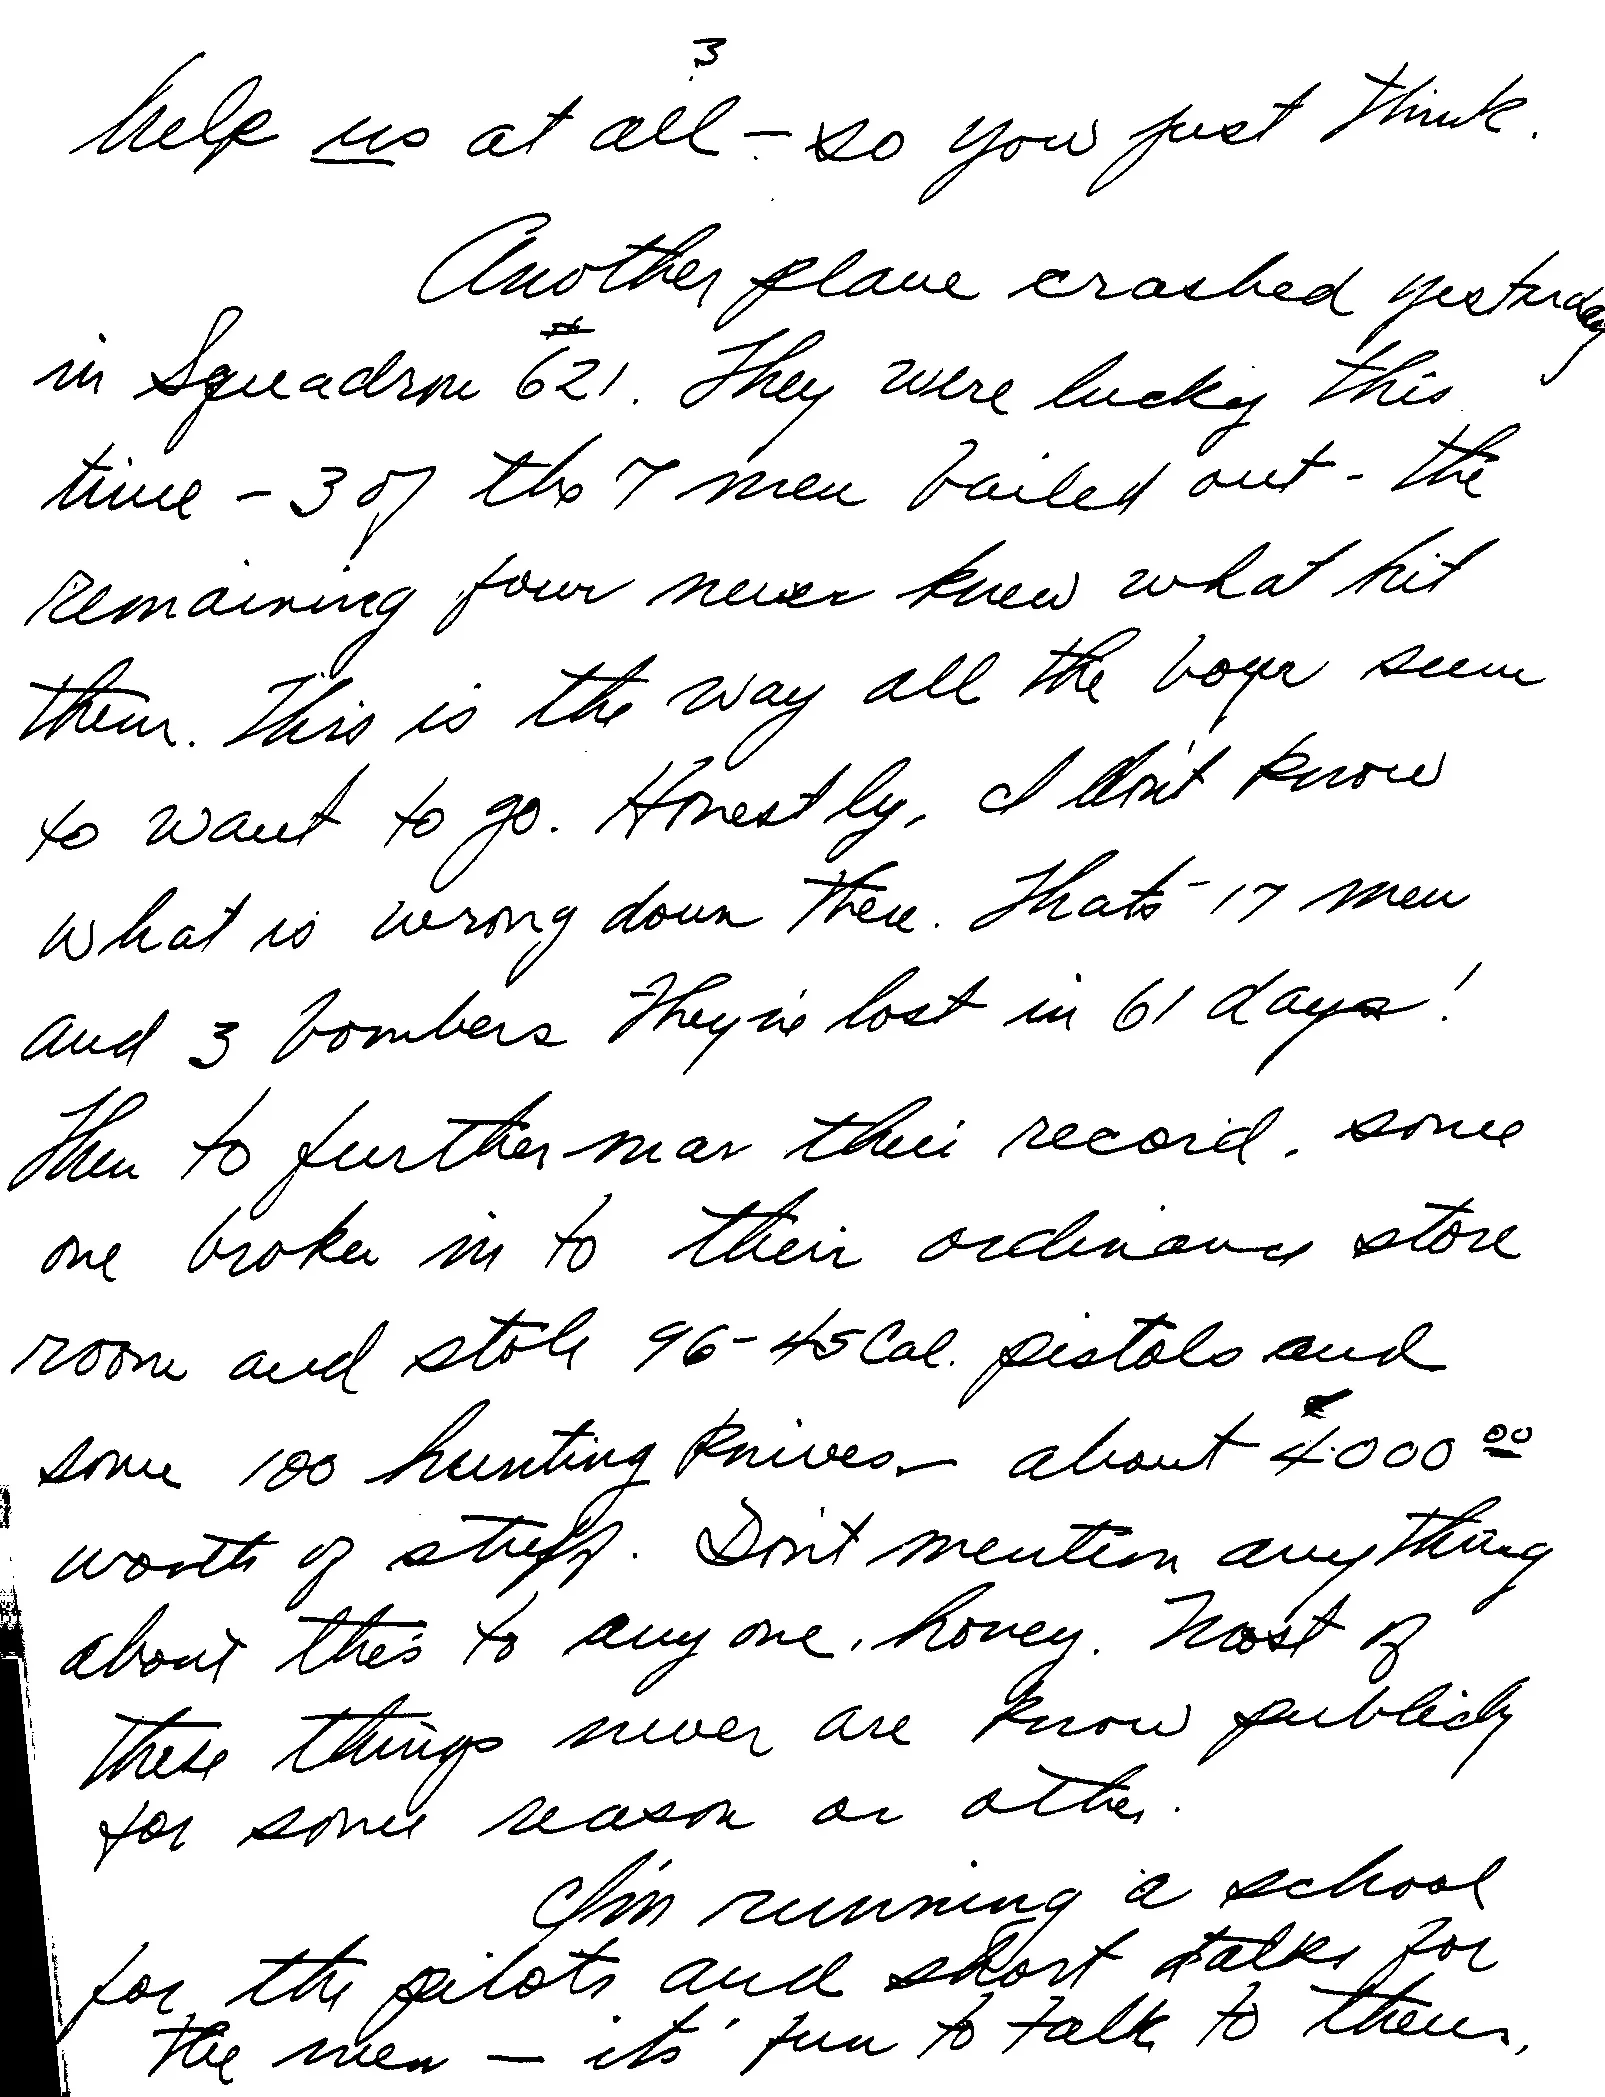 3
help us at all - so you just think.
Another plane crashed yesterday
in Squadron #621. They were lucky this
time - 3 of the 7 men bailed out - the
remaining four never knew what hit
them. This is the way all the boys seem
to want to go. Honestly, I don't know
what is wrong down there. Thats - 17 men
and 3 bombers they've lost in 61 days!
Then to further mar their record, some
one broke in to their ordinance store
room and stole 96 - 45 Cal. pistols and
some 100 hunting knives - about 4000 00
worth of stuff. Don't mention anything
about this to any one, honey. Most of
these things never are know publicly
for some reason or other.
I'm running a school
for the pilots and short talks for
the men - its' fun to talk to them,